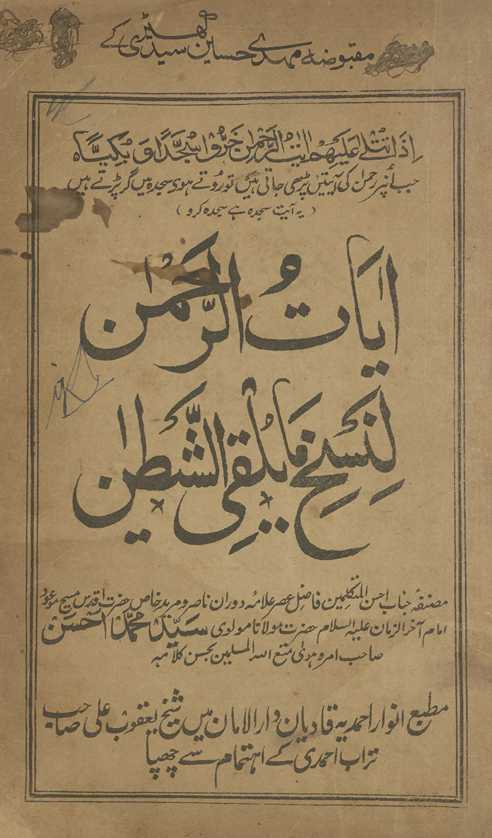 مقبوضہ مہدی حسین سیدکھیڑی کے
اِذَا تُتْلٰى عَلَيْهِمْ اٰيٰتُ الرَّحْمٰنِ خَرُّوْا سُجَّدًا وَّبُكِيًّا ۵
جب اُنپر رحمٰن کی آیتیں پڑھی جاتی ہیں تو روتے ہوی سجدہ میں گر پڑتے ہیں
( یہ آیت سجدہ ہے سجدہ کرو )
اٰیَاتُ الرَّحْمٰن
لِنَسْخِ مَا یُلْقِی الشَّیْطٰن
مصنفہ جناب احسن المتکلمین فاضل عصر علامہ دوران ناصر و مرید خاص حضرت اقدس مسیح موعود
امام آخر الزمان علیہ السلام حضرت مولانا مولوی سَیِّد مُحَمَّد اَحْسَن
صاحب امروہی متع اللہ المسلمین بحسن کلامہ
مطبع انوار احمدیہ قادیان دارالامان میں شیخ یعقوب علی صاحب
تراب احمدی کے اہتمام سے چھپا